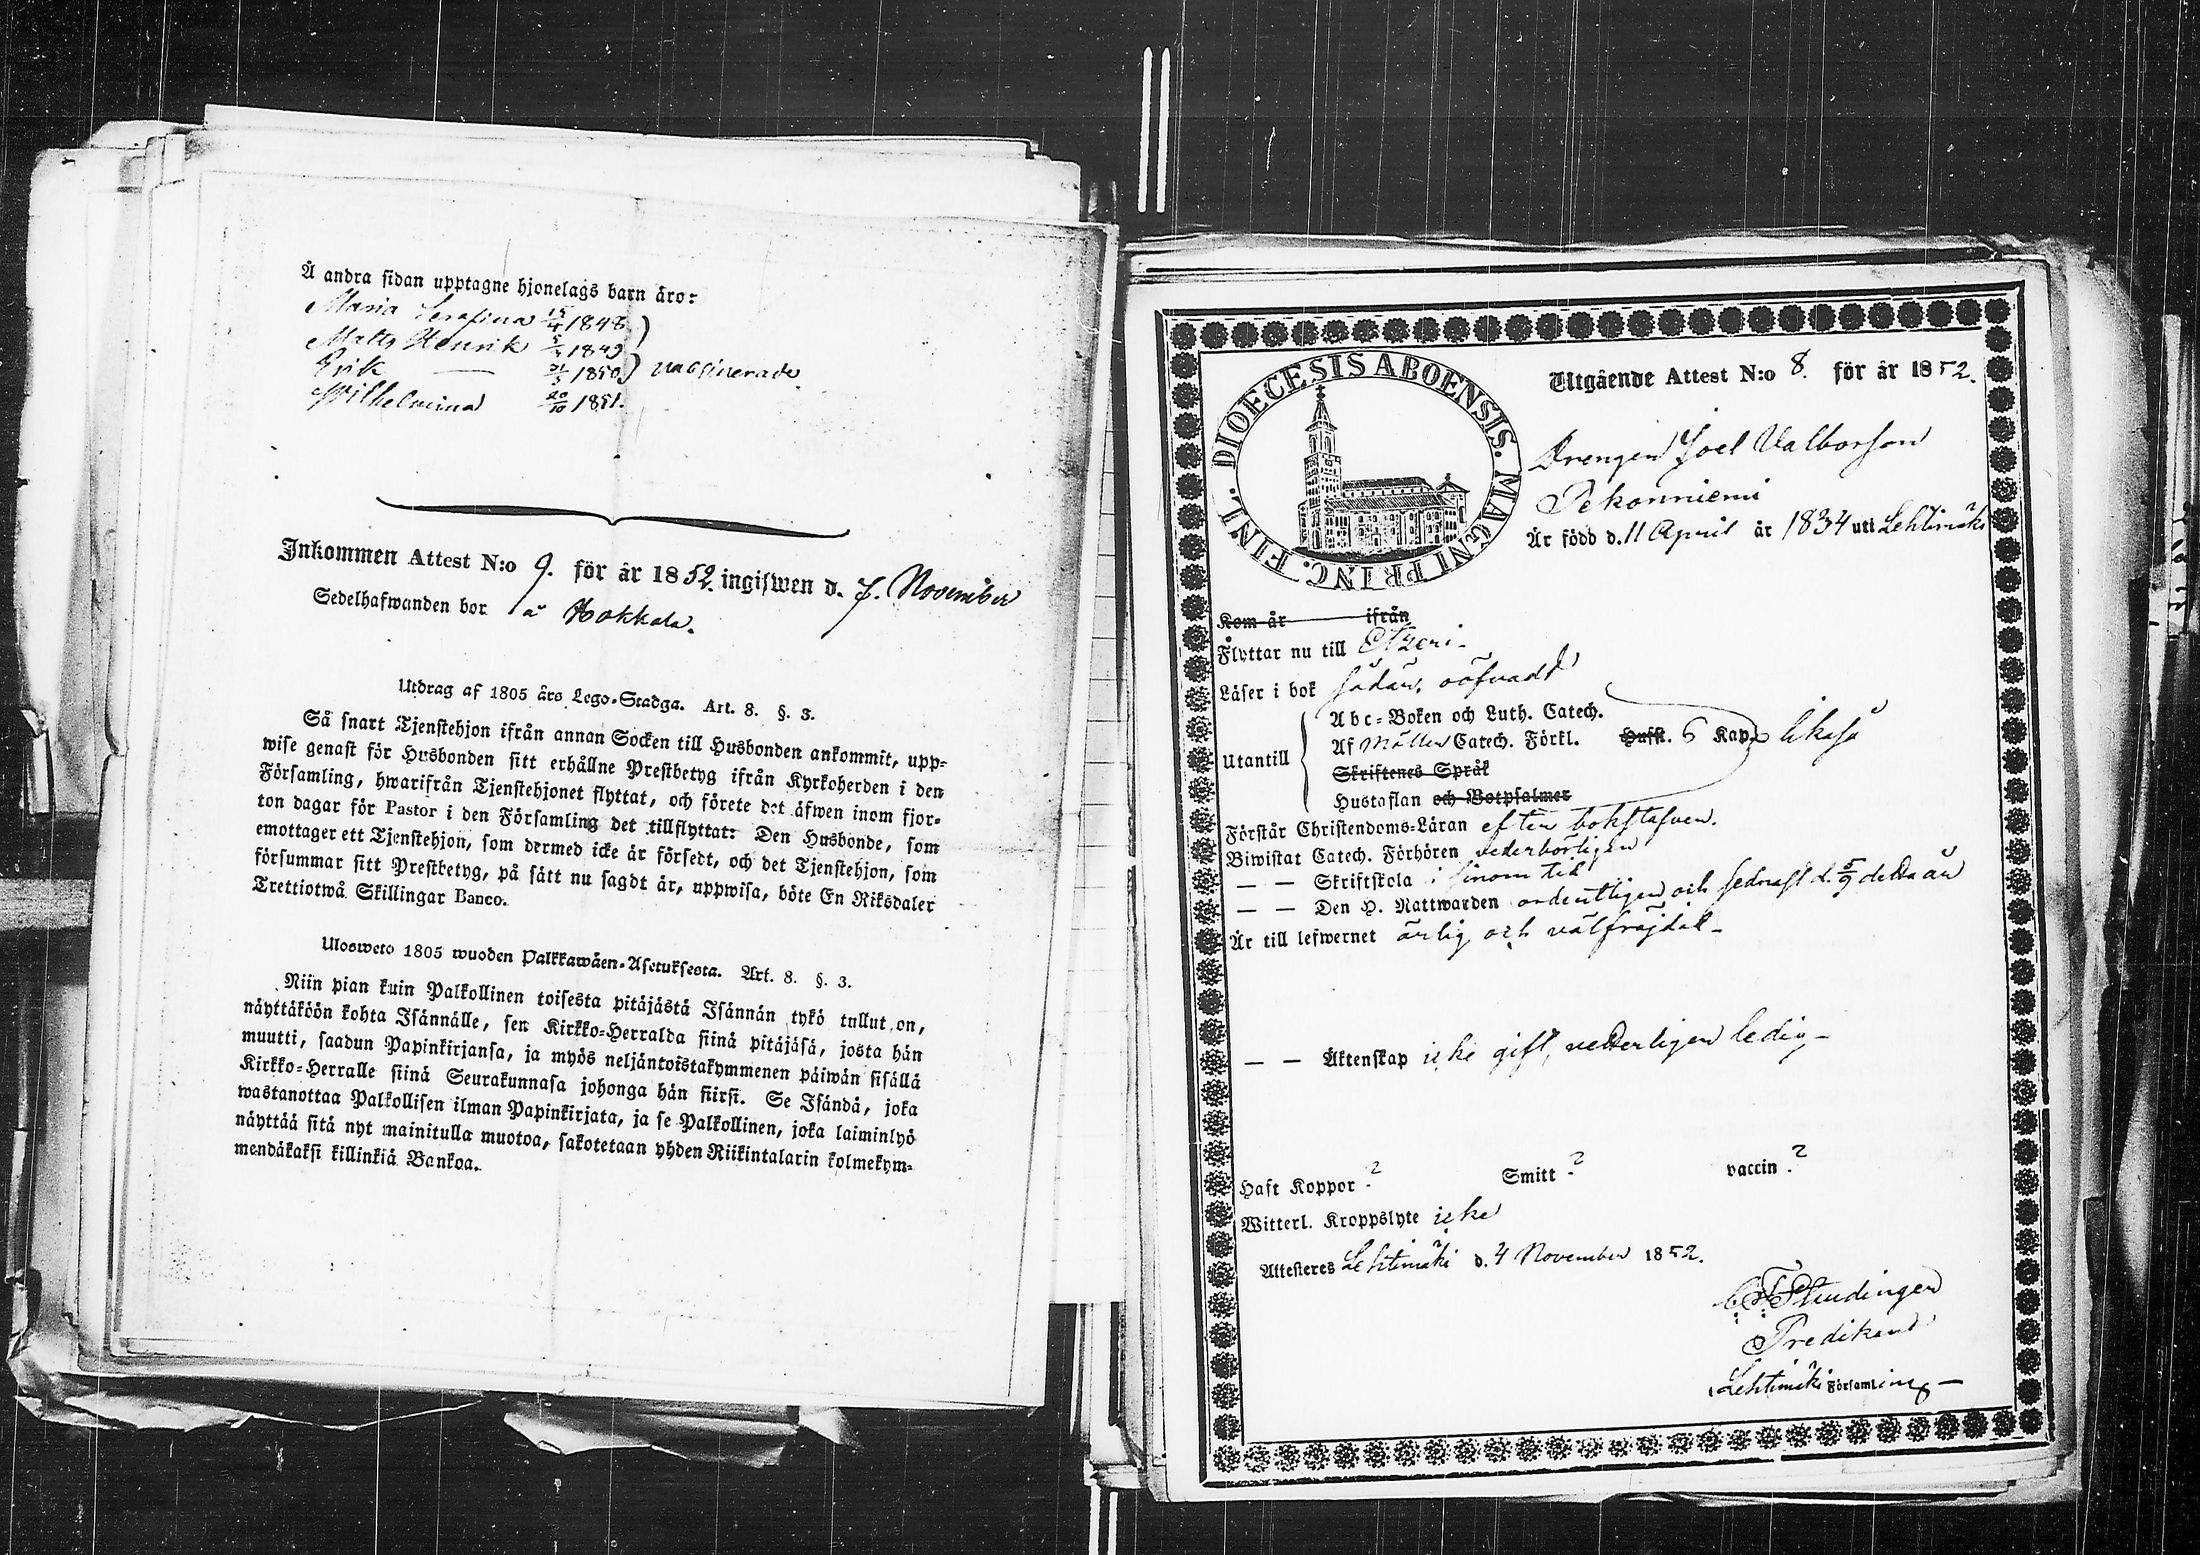 Å andra sidan upptagne hjonelags barn äro:
Maria Serafina 15/4 1848
Matts Henrik 5/3 1849
Erik — 21/3 1850 vaccinerade
Wilhelmina 20/10 1851.
Inkommen Attest N:o 9. för år 1852. ingifwen d. 7. November
Sedelhafwanden bor å Hokkala.
Utdrag af 1805 års Lego-Stadga. Art. 8. §. 3.
Så snart Tjenstehjon ifrån annan Socken till Husbonden ankommit, upp-
wise genast för Husbonden sitt erhållne Prestbetyg ifrån Kyrkoherden i den
Församling, hwarifrån Tjenstehjonet flyttat, och förete det äfwen inom fjor-
ton dagar för Pastor i den Församling det tillflyttat: Den Husbonde, som
emottager ett Tjenstehjon, som dermed icke är försedt, och det Tjenstehjon, som
försummar sitt Prestbetyg, på sätt nu sagdt är, uppwisa, böte En Riksdaler
Trettiotwå Skillingar Banco.
Ulosweto 1805 wuoden Palkkawäen-Asetuksesta. Art. 8. §. 3.
Niin pian kuin Palkollinen toisesta pitäjästä Isännän tykö tullut on,
näyttäköön kohta Isännälle, sen Kirkko-Herralda siinä pitäjäsä, josta hän
muutti, saadun Papinkirjansa, ja myös neljäntoistakymmenen päiwän sisällä
Kirkko-Herralle siinä Seurakunnasa johonga hän siirsi. Se Isändä, joka
wastanottaa Palkollisen ilman Papinkirjata, ja se Palkollinen, joka laiminlyö
näyttää sitä nyt mainitulla muotoa, sakotetaan yhden Riikintalarin kolmekym-
mendäkaksi killinkiä Bankoa.
DIOECESIS ABOENSIS. MAGNI PRINC. FINL.
Utgående Attest N:o 8. för år 1852.
Drengen Joel Valborson
Pekonniemi
Är född d. 11 April år 1834 uti Lehtimäki
Kom år ifrån
Flyttar nu till Etzeri
Läser i bok oöfvadt
Utantill
Abc-Boken och Luth. Catech.
Af Möllers Catech. Förkl. Hufst. 6 Kap. likaså
Skriftenes Språk
Hustaflan och Botpsalmer
Förstår Christendoms-Läran efter bokstafven.
Biwistat Catech. Förhören vederbörligen
— — Skriftskola i sinom tid
— — Den H. Nattwarden ordentligen och sednast d. 5/9 detta år
Är till lefwernet ärlig och välfräjdad
— — Äktenskap icke gift, vederligen ledig
Haft Koppor ? Smitt ? vaccin ?
Witterl. Kroppslyte icke
Attesteres Lehtimäki d. 4 November 1852.
Predikant
Lehtimäki Församling